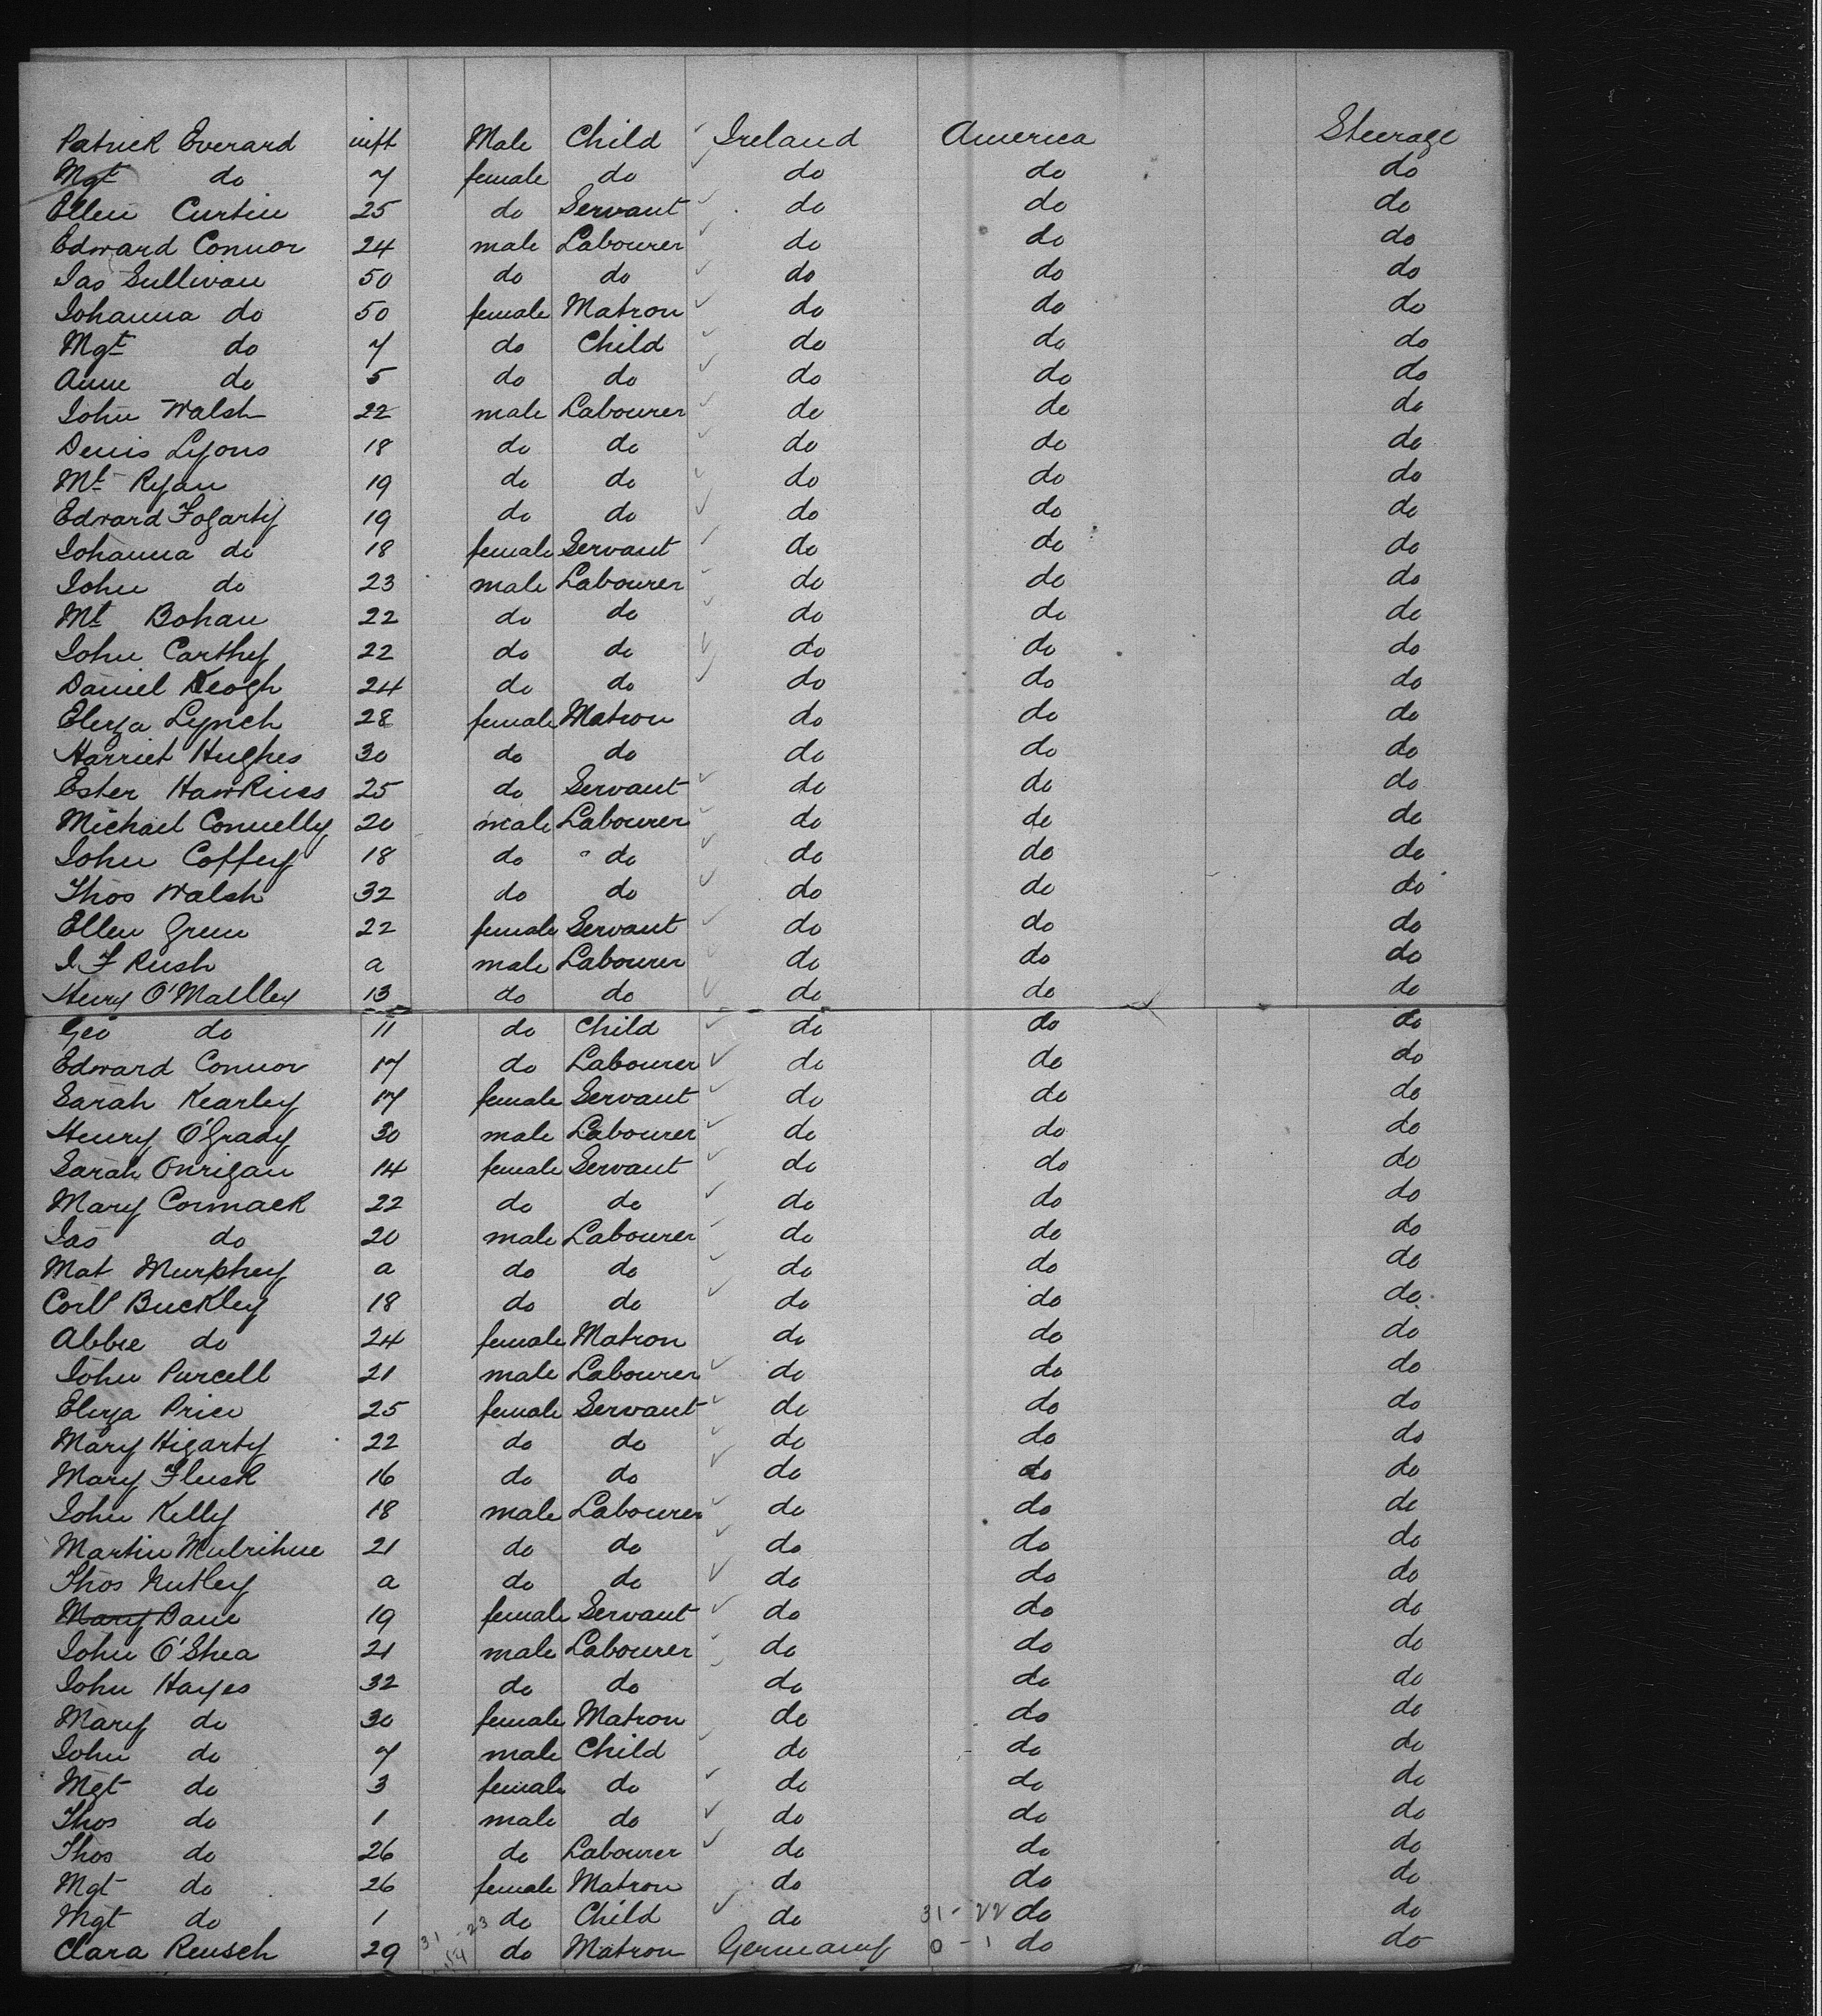 Patrick Everard inft Male Child Ireland America Steerage
Mgt do 7 female do do do do
Ellen Curtin 25 do Servant do do do
Edward Connor 24 male Labourer do do do
Jas Sullivan 50 do do do do do
Johanna do 50 female Matron do do do
Mgt do 7 do Child do do do
Anne do 5 do do do do do
John Walsh 22 male Labourer do do do
Denis Lyons 18 do do do do do
Mt Ryan 19 do do do do do
Edward Fogarty 19 do do do do do
Johanna do 18 female Servant do do do
John do 23 male Labourer do do do
Mt Bohan 22 do do do do do
John Carthy 22 do do do do do
Daniel Keogh 24 do do do do do
Eliza Lynch 28 female Matron do do do
Harriet Hughes 30 do do do do do
Ester Hawkins 25 do Servant do do do
Michael Connelly 20 male Labourer do do do
John Coffey 18 do do do do do
Thos Walsh 32 do do do do do
Ellen Green 22 female Servant do do do
J F Rush a male Labourer do do do
Henry O'Mallley 13 do do do do do
Geo do 11 do Child do do do
Edward Connor 17 do Labourer do do do
Sarah Kearley 17 female Servant do do do
Henry O'Grady 30 male Labourer do do do
Sarah Onrigan 14 female Servant do do do
Mary Cormack 22 do do do do do
Jas do 20 male Labourer do do do
Mat Murphey a do do do do do
Corls Buckley 18 do do do do do
Abbie do 24 female Matron do do do
John Purcell 21 male Labourer do do do
Eliza Price 25 female Servant do do do
Mary Higarty 22 do do do do do
Mary Flusk 16 do do do do do
John Kelly 18 male Labourer do do do
Martin Mulrihue 21 do do do do do
Thos Nutley a do do do do do
Mary Dane 19 female Servant do do do
John O'Shea 21 male Labourer do do do
John Hayes 32 do do do do do
Mary do 30 female Matron do do do
John do 7 male Child do do do
Mgt do 3 female do do do do
Thos do 1 male do do do do
Thos do 26 do Labourer do do do
Mgt do 26 female Matron do do do
Mgt do 1 31 - 23 do Child do 31 - 22 do do
Clara Reusch 29 do Matron Germany 0 - 1 do do